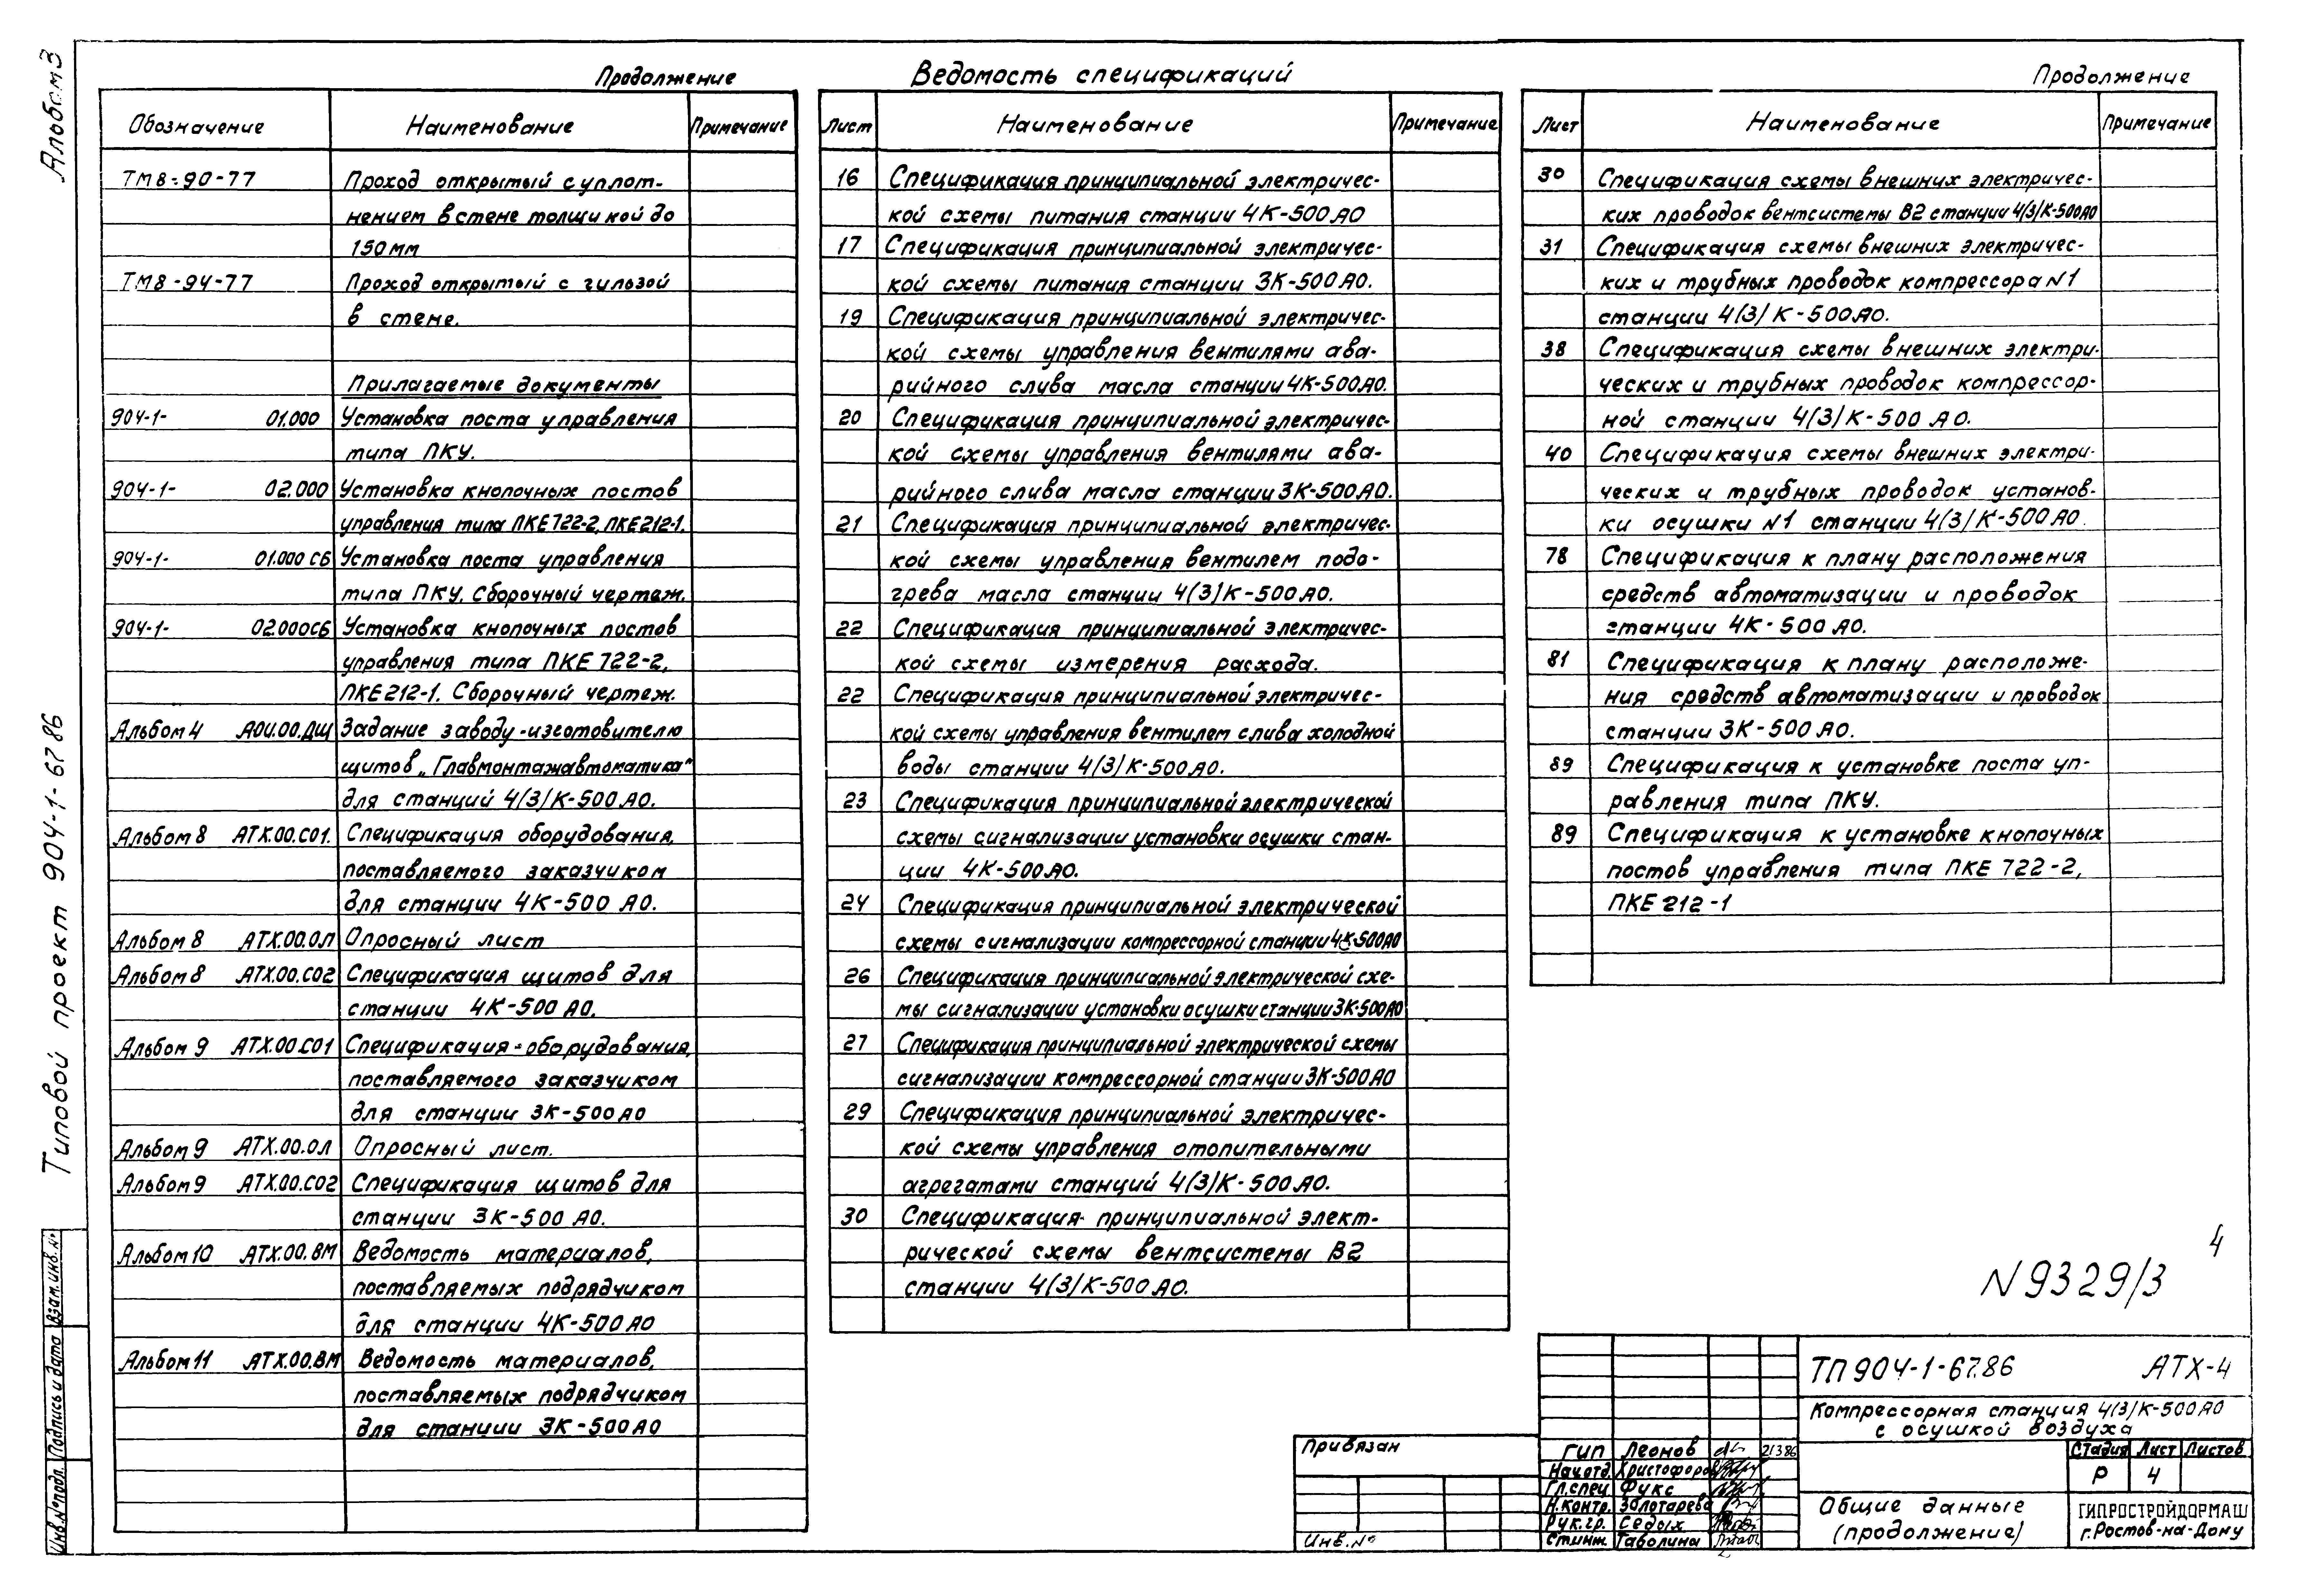 Альбом 3
Типовой проект 904-1-67.86
Продолжение
Обозначение Наименование Примечание
ТМ8-90-77 Проход открытый с уплот-
нением в стене толщиной до
150 мм
ТМ8-94-77 Проход открытый с гильзой
в стене.
Прилагаемые документы
904-1- 01.000 Установка поста управления
типа ПКУ.
904-1- 02.000 Установка кнопочных постов
управления типа ПКЕ 722-2, ПКЕ 212-1.
904-1- 01.000 СБ Установка поста управления
типа ПКУ. Сборочный чертеж.
904-1- 02.000СБ Установка кнопочных постов
управления типа ПКЕ 722-2,
ПКЕ 212-1. Сборочный чертеж.
Альбом 4 АОИ.00.ДЩ Задание заводу-изготовителю
щитов „Главмонтажавтоматика"
для станций 4(3)К-500 АО.
Альбом 8 АТХ.00.СО1. Спецификация оборудования,
поставляемого заказчиком
для станции 4К-500 АО.
Альбом 8 АТХ.00.ОЛ Опросный лист
Альбом 8 АТХ.00.СО2 Спецификация щитов для
станции 4К-500 АО.
Альбом 9 АТХ.00.СО1 Спецификация-оборудования,
поставляемого заказчиком
для станции 3К-500 АО
Альбом 9 АТХ.00.ОЛ Опросный лист.
Альбом 9 АТХ.00.СО2 Спецификация щитов для
станции 3К-500 АО.
Альбом 10 АТХ.00.ВМ Ведомость материалов,
поставляемых подрядчиком
для станции 4К-500 АО
Альбом 11 АТХ.00.ВМ Ведомость материалов,
поставляемых подрядчиком
для станции 3К-500 АО
Ведомость спецификаций
Лист Наименование Примечание
16 Спецификация принципиальной электричес-
кой схемы питания станции 4К-500 АО
17 Спецификация принципиальной электричес-
кой схемы питания станции 3К-500 АО.
19 Спецификация принципиальной электричес-
кой схемы управления вентилями ава-
рийного слива масла станции 4К-500 АО.
20 Спецификация принципиальной электричес-
кой схемы управления вентилями ава-
рийного слива масла станции 3К-500 АО.
21 Спецификация принципиальной электричес-
кой схемы управления вентилем подо-
грева масла станции 4(3)К-500 АО.
22 Спецификация принципиальной электричес-
кой схемы измерения расхода.
22 Спецификация принципиальной электричес-
кой схемы управления вентилем слива холодной
воды станции 4(3)К-500 АО.
23 Спецификация принципиальной электрической
схемы сигнализации установки осушки стан-
ции 4К-500 АО.
24 Спецификация принципиальной электрической
схемы сигнализации компрессорной станции 4К-500 АО
26 Спецификация принципиальной электрической схе-
мы сигнализации установки осушки станции 3К-500 АО
27 Спецификация принципиальной электрической схемы
сигнализации компрессорной станции 3К-500 АО
29 Спецификация принципиальной электричес-
кой схемы управления отопительными
агрегатами станций 4(3)К-500 АО.
30 Спецификация принципиальной элект-
рической схемы вентсистемы В2
станции 4(3)К-500 АО.
Продолжение
Лист Наименование Примечание
30 Спецификация схемы внешних электричес-
ких проводок вентсистемы В2 станции 4(3)К-500 АО
31 Спецификация схемы внешних электричес-
ких и трубных проводок компрессора N1
станции 4(3)К-500 АО.
38 Спецификация схемы внешних электри-
ческих и трубных проводок компрессор-
ной станции 4(3)К-500 АО.
40 Спецификация схемы внешних электри-
ческих и трубных проводок установ-
ки осушки N1 станции 4(3)К-500 АО.
78 Спецификация к плану расположения
средств автоматизации и проводок
станции 4К-500 АО.
81 Спецификация к плану расположе-
ния средств автоматизации и проводок
станции 3К-500 АО.
89 Спецификация к установке поста уп-
равления типа ПКУ.
89 Спецификация к установке кнопочных
постов управления типа ПКЕ 722-2,
ПКЕ 212-1
4
N 9329/3
Взам. инв. №
Подпись и дата
Инв. № подл.
Привязан
Инв. №
ГИП Леонов 21386
Нач.отд. Христофоров
Гл.спец Фукс
Н.контр. Золотарева
Рук.гр. Седых
Ст.инж. Таболина
ТП 904-1-67.86 АТХ-4
Компрессорная станция 4(3)К-500 АО
с осушкой воздуха
Стадия Лист Листов
Р 4
Общие данные
(продолжение)
ГИПРОСТРОЙДОРМАШ
г.Ростов-на-Дону